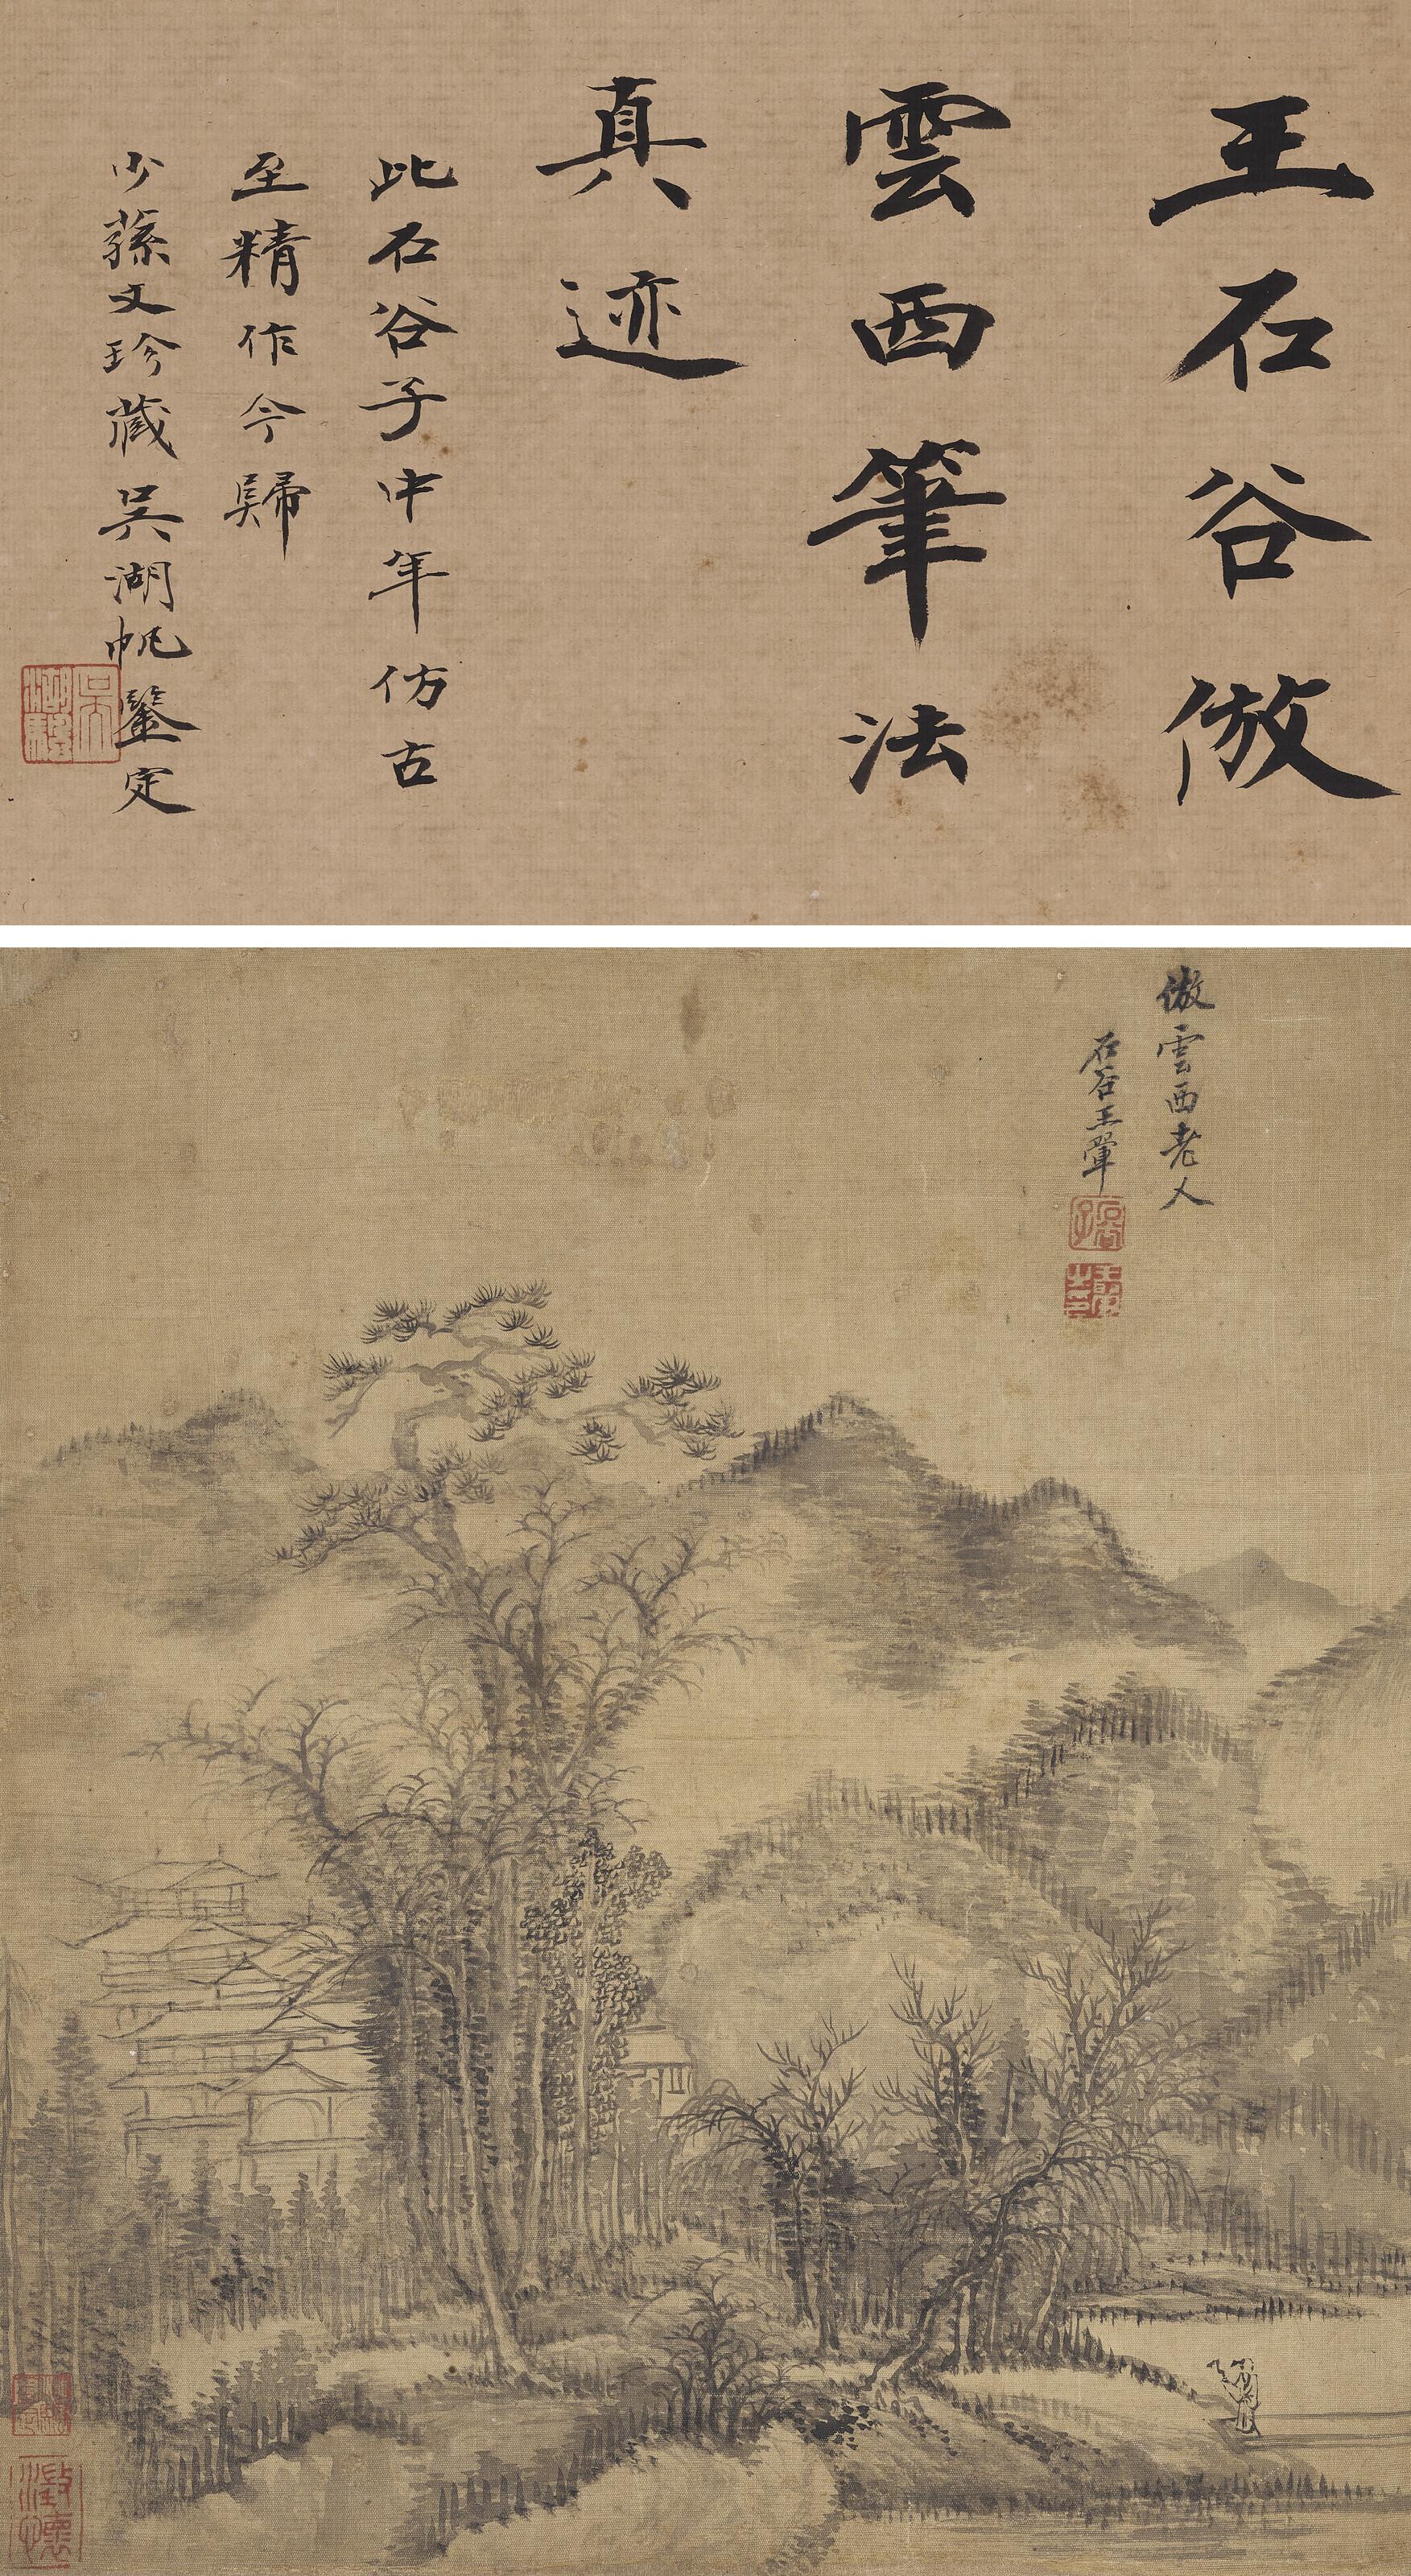 王石谷倣
雲西筆法
真迹
此石谷子中年仿古
至精作今歸
少蓀文珍藏吳湖帆鑒定
倣雲西老人
石谷王翬
石谷子
澂懷